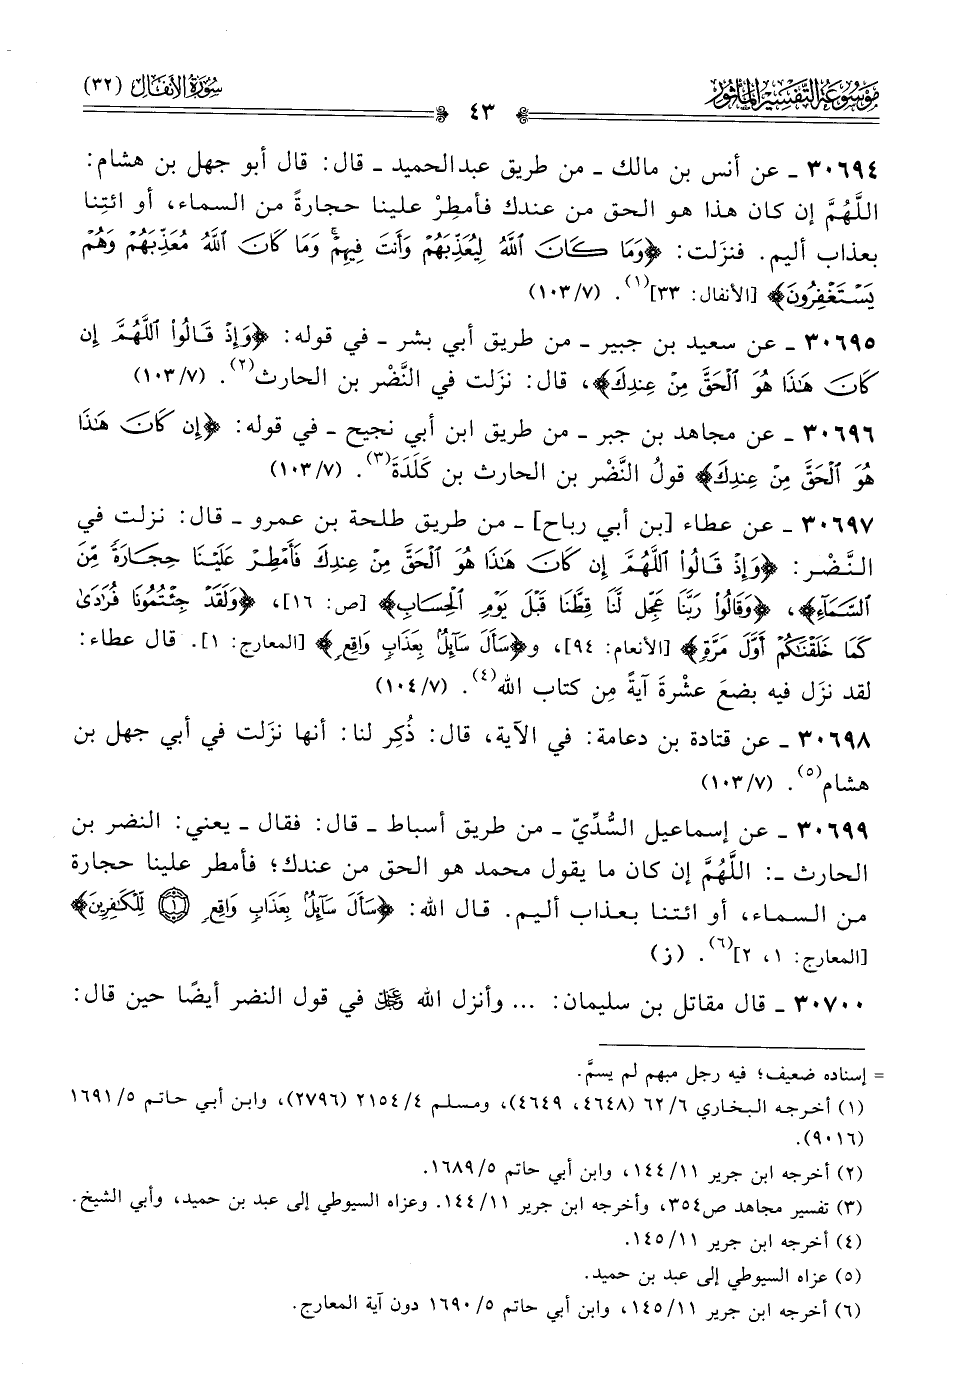 موسوعة التفسير المأثور
سورة الأنفال (٣٢)
٤٣
٣٠٦٩٤ ـ عن أنس بن مالك ـ من طريق عبدالحميد ـ قال: قال أبو جهل بن هشام:
اللَّهُمَّ إن كان هذا هو الحق من عندك فأمطِرْ علينا حجارةً من السماء، أو ائتِنا
بعذاب أليم. فنزَلت: ﴿وَمَا كَانَ ٱللَّهُ لِيُعَذِّبَهُمْ وَأَنتَ فِيهِمْ وَمَا كَانَ ٱللَّهُ مُعَذِّبَهُمْ وَهُمْ
يَسْتَغْفِرُونَ﴾ [الأنفال: ٣٣](١). (٧/ ١٠٣)
٣٠٦٩٥ ـ عن سعيد بن جبير ـ من طريق أبي بشر ـ في قوله: ﴿وَإِذْ قَالُوا۟ ٱللَّهُمَّ إِن
كَانَ هَـٰذَا هُوَ ٱلْحَقَّ مِنْ عِندِكَ﴾، قال: نزَلت في النَّضْر بن الحارث(٢). (٧/ ١٠٣)
٣٠٦٩٦ ـ عن مجاهد بن جبر ـ من طريق ابن أبي نجيح ـ في قوله: ﴿إِن كَانَ هَـٰذَا
هُوَ ٱلْحَقَّ مِنْ عِندِكَ﴾ قولُ النَّضْر بن الحارث بن كَلَدَةَ(٣). (٧/ ١٠٣)
٣٠٦٩٧ ـ عن عطاء [بن أبي رباح] ـ من طريق طلحة بن عمرو ـ قال: نزلت في
النَّضْر: ﴿وَإِذْ قَالُوا۟ ٱللَّهُمَّ إِن كَانَ هَـٰذَا هُوَ ٱلْحَقَّ مِنْ عِندِكَ فَأَمْطِرْ عَلَيْنَا حِجَارَةً مِّنَ
ٱلسَّمَآءِ﴾، ﴿وَقَالُوا۟ رَبَّنَا عَجِّل لَّنَا قِطَّنَا قَبْلَ يَوْمِ ٱلْحِسَابِ﴾ [ص: ١٦]، ﴿وَلَقَدْ جِئْتُمُونَا فُرَادَىٰ
كَمَا خَلَقْنَـٰكُمْ أَوَّلَ مَرَّةٍ﴾ [الأنعام: ٩٤]، و﴿سَأَلَ سَآئِلٌۢ بِعَذَابٍ وَاقِعٍ﴾ [المعارج: ١]. قال عطاء:
لقد نزَل فيه بضعَ عشْرةَ آيةً مِن كتاب الله(٤). (٧/ ١٠٤)
٣٠٦٩٨ ـ عن قتادة بن دعامة: في الآية، قال: ذُكِر لنا: أنها نزَلت في أبي جهل بن
هشام(٥). (٧/ ١٠٣)
٣٠٦٩٩ ـ عن إسماعيل السُّدِّيّ ـ من طريق أسباط ـ قال: فقال ـ يعني: النضر بن
الحارث ـ: اللَّهُمَّ إن كان ما يقول محمد هو الحق من عندك؛ فأمطر علينا حجارة
من السماء، أو ائتنا بعذاب أليم. قال الله: ﴿سَأَلَ سَآئِلٌۢ بِعَذَابٍ وَاقِعٍ ١ لِّلْكَـٰفِرِينَ﴾
[المعارج: ١، ٢](٦). (ز)
٣٠٧٠٠ ـ قال مقاتل بن سليمان: ... وأنزل الله ﷿ في قول النضر أيضًا حين قال:
= إسناده ضعيف؛ فيه رجل مبهم لم يسمَّ.
(١) أخرجه البخاري ٦/ ٦٢ (٤٦٤٨، ٤٦٤٩)، ومسلم ٤/ ٢١٥٤ (٢٧٩٦)، وابن أبي حاتم ٥/ ١٦٩١
(٩٠١٦).
(٢) أخرجه ابن جرير ١١/ ١٤٤، وابن أبي حاتم ٥/ ١٦٨٩.
(٣) تفسير مجاهد ص٣٥٤، وأخرجه ابن جرير ١١/ ١٤٤. وعزاه السيوطي إلى عبد بن حميد، وأبي الشيخ.
(٤) أخرجه ابن جرير ١١/ ١٤٥.
(٥) عزاه السيوطي إلى عبد بن حميد.
(٦) أخرجه ابن جرير ١١/ ١٤٥، وابن أبي حاتم ٥/ ١٦٩٠ دون آية المعارج.